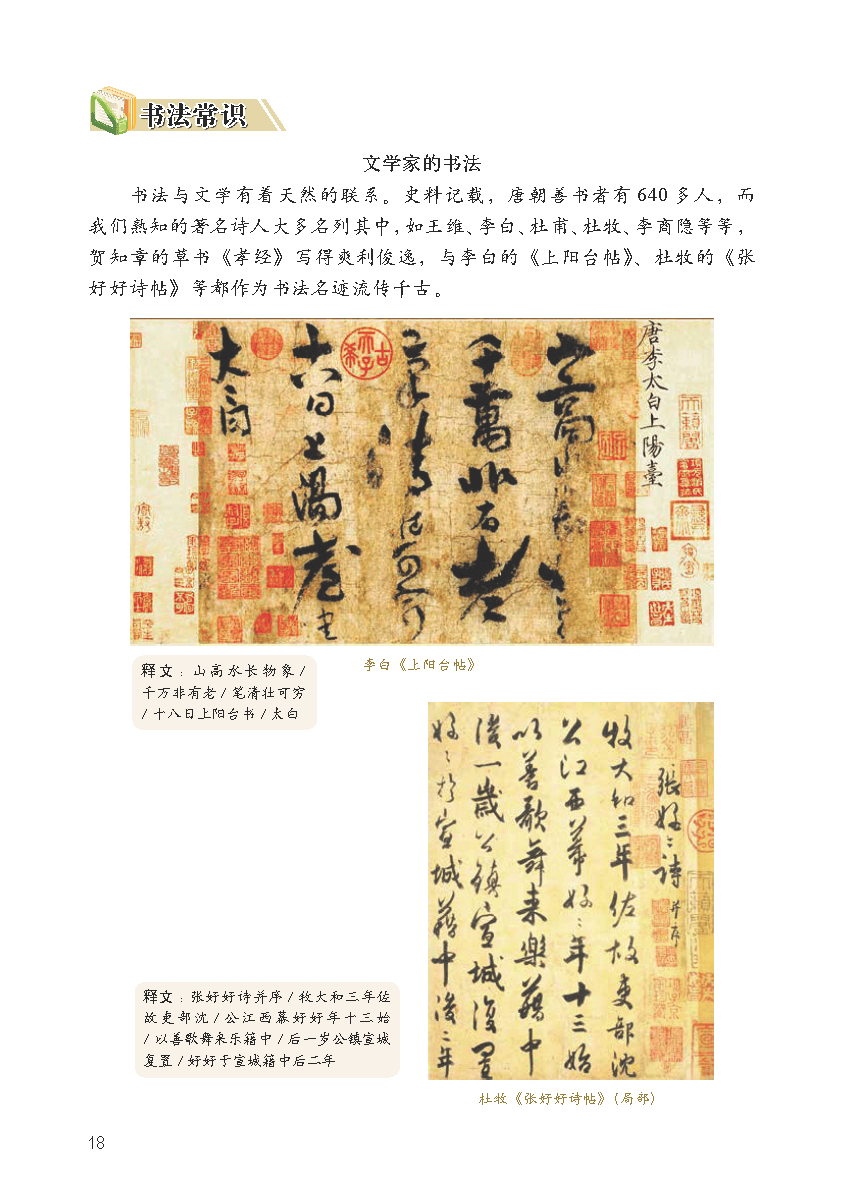 书法常识
文学家的书法
书法与文学有着天然的联系。史料记载，唐朝善书者有 640 多人，而
我们熟知的著名诗人大多名列其中，如王维、李白、杜甫、杜牧、李商隐等等，
贺知章的草书《孝经》写得爽利俊逸，与李白的《上阳台帖》、杜牧的《张
好好诗帖》等都作为书法名迹流传千古。
唐李太白上陽臺
山高水长物象
千萬非有老
筆清壮可穷
十八日上陽臺书
太白
李白《上阳台帖》
释文：山高水长物象 /
千万非有老 / 笔清壮可穷
/ 十八日上阳台书 / 太白
張好〻詩并序
牧大和三年佐故吏部沈
公江西幕好〻年十三始
以善歌舞来樂籍中
後一歲公鎮宣城復置
好〻於宣城籍中後二年
释文：张好好诗并序 / 牧大和三年佐
故吏部沈 / 公江西幕好好年十三始
/ 以善歌舞来乐籍中 / 后一岁公镇宣城
复置 / 好好于宣城籍中后二年
杜牧《张好好诗帖》（局部）
18